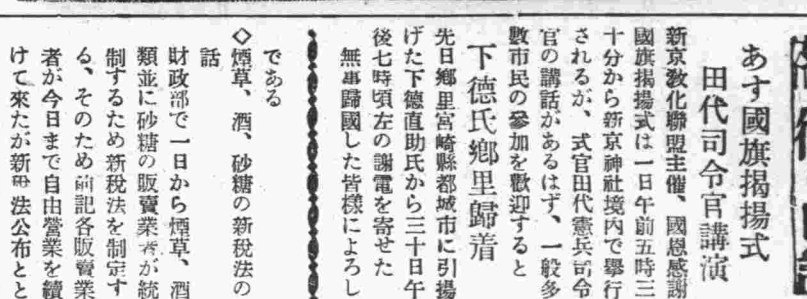 あす國旗揭揚式
田代司令官講演
新京敎化聯盟主催、國恩感謝
國旗揭揚式は一日午前五時三
十分から新京神社境内で擧行
されるが、式官田代憲兵司令
官の講話があるはず、一般多
數市民の參加を歡迎すると
下德氏鄕里歸着
先日鄕里宮崎縣都城市に引揚
げた下德直助氏から三十日午
後七時頃左の謝電を寄せた
無事歸國した皆樣によろし
である
◇煙草、酒、砂糖の新稅法の
話
財政部で一日から煙草、酒
類並に砂糖の販賣業者が統
制するため新稅法を制定す
る、そのため前記各販賣業
者が今日まで自由營業を續
けて來たが新 法公布とと